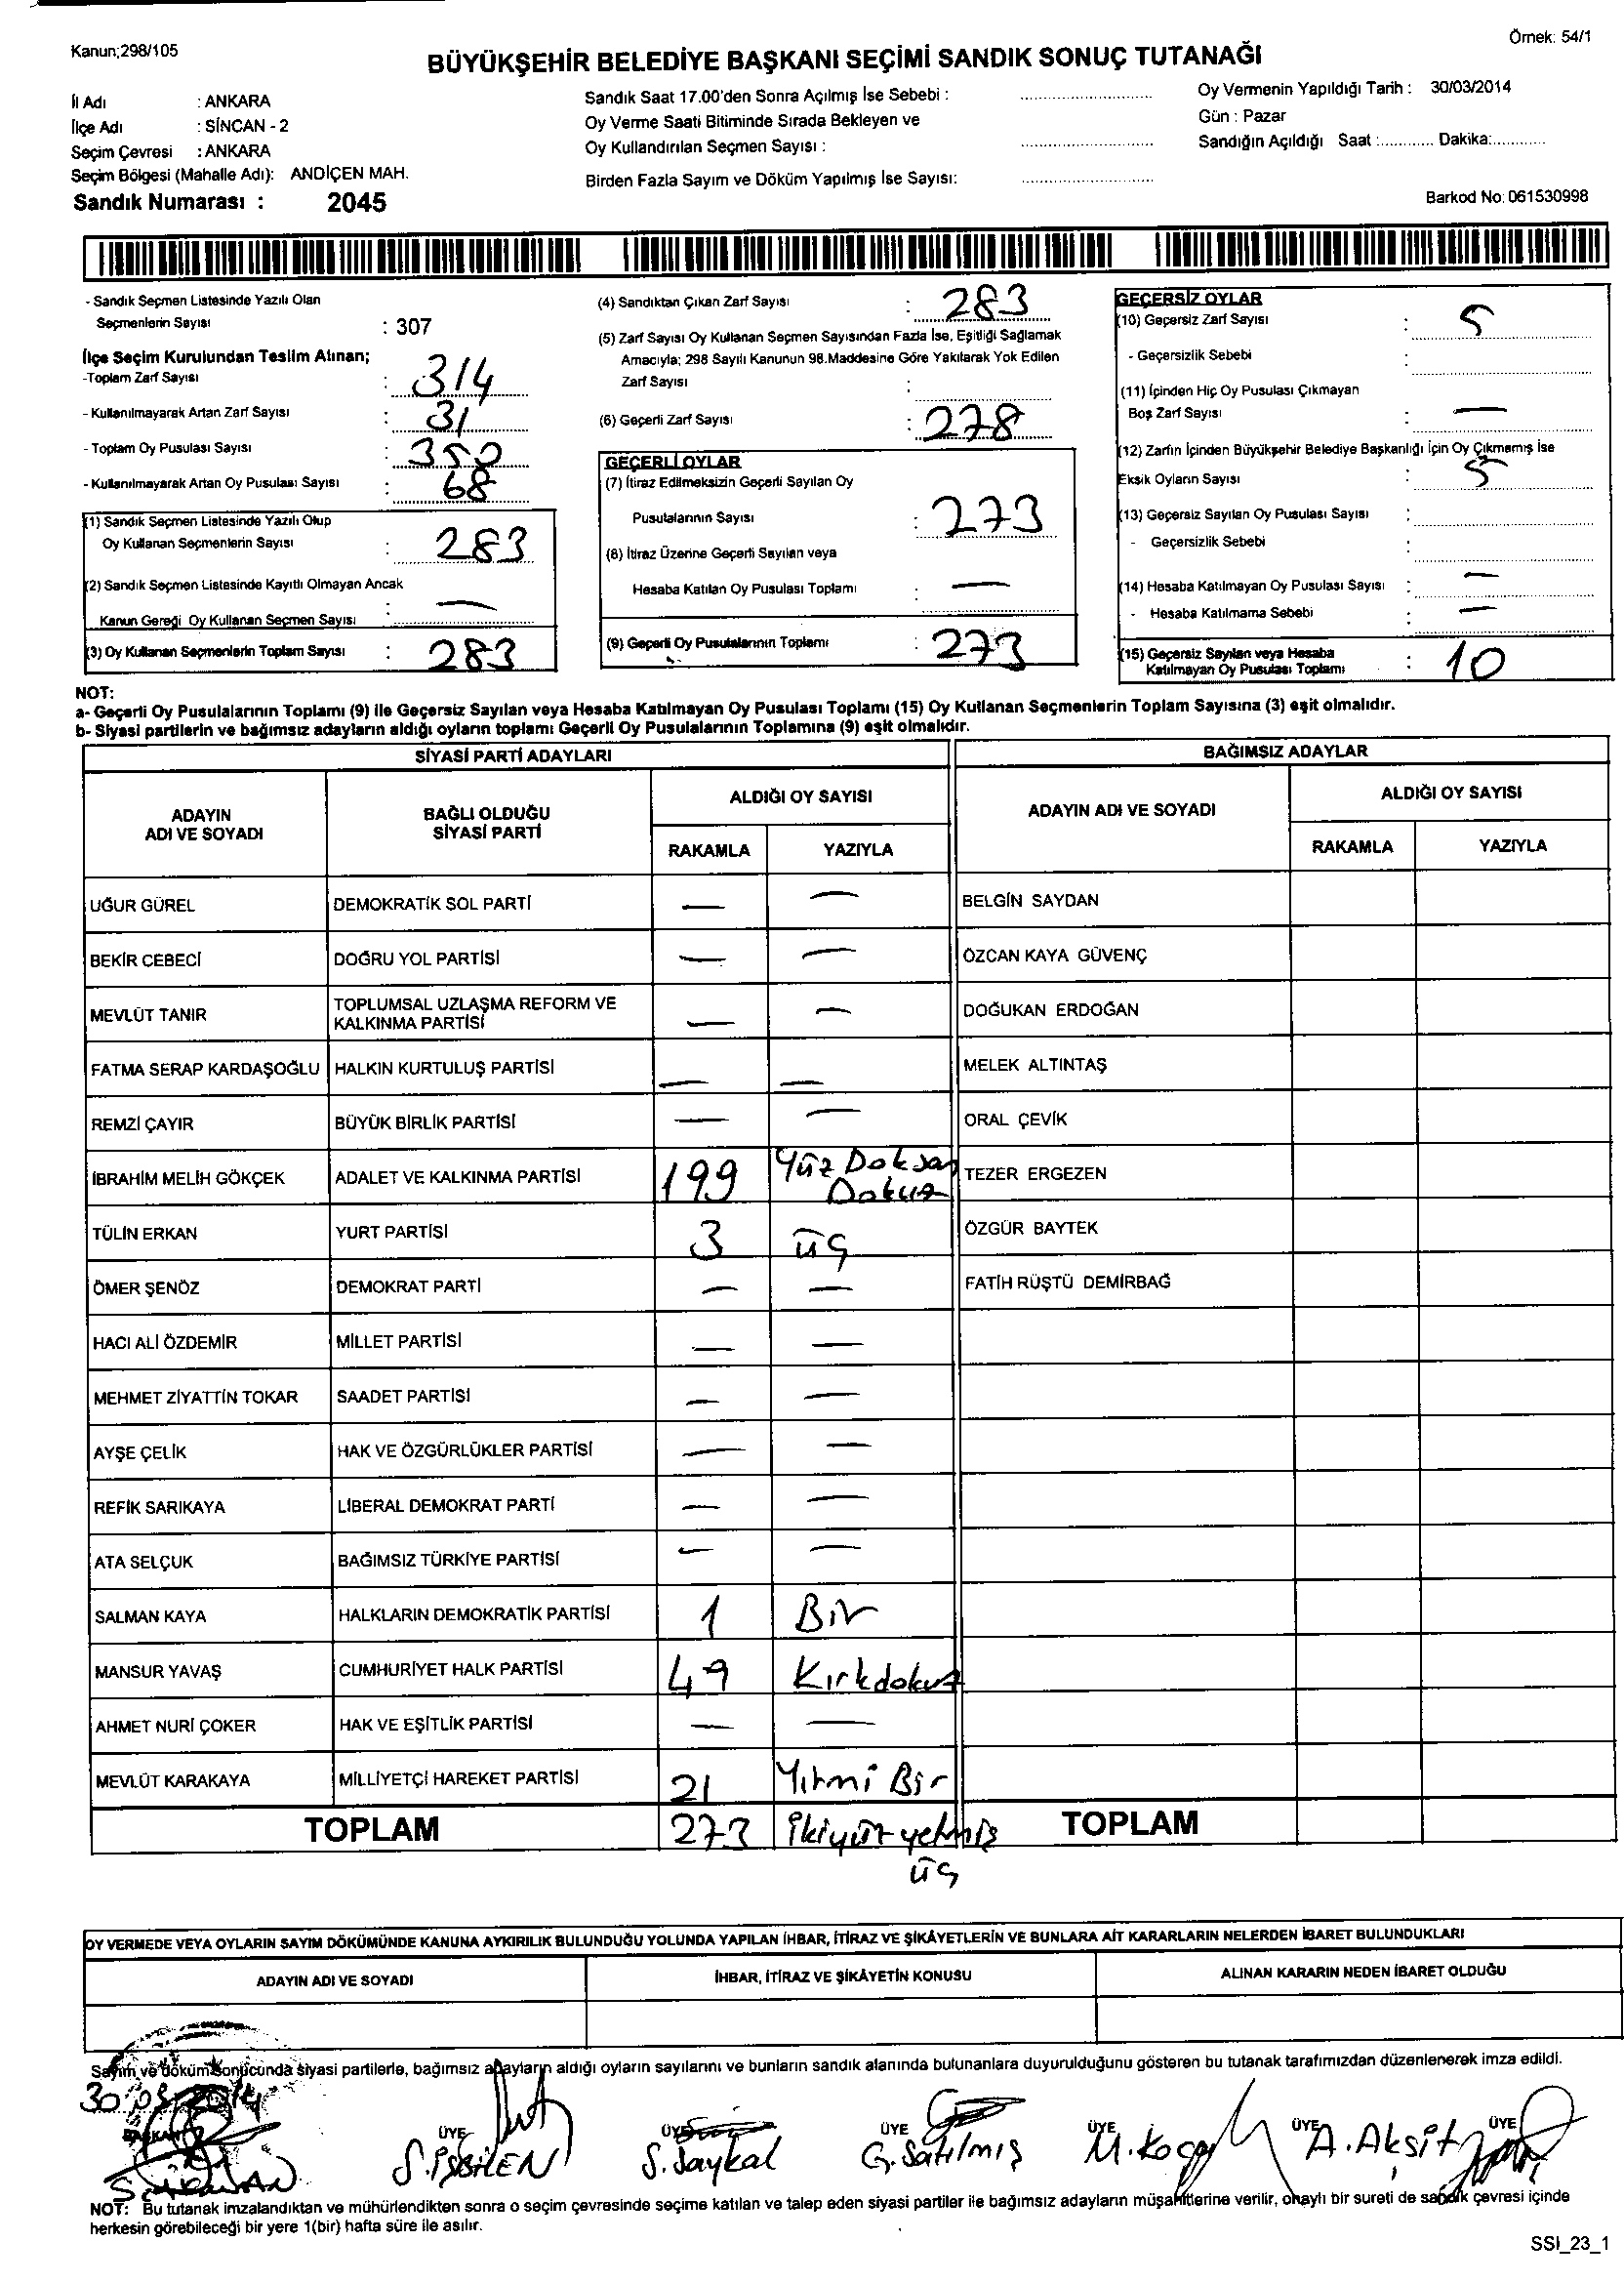 Kanun;298/105
Örnek: 54/1
BÜYÜKŞEHİR BELEDİYE BAŞKANI SEÇİMİ SANDIK SONUÇ TUTANAĞI
İl Adı : ANKARA
İlçe Adı : SİNCAN - 2
Seçim Çevresi : ANKARA
Seçim Bölgesi (Mahalle Adı): ANDİÇEN MAH.
Sandık Numarası : 2045
Sandık Saat 17.00'den Sonra Açılmış İse Sebebi : ............
Oy Verme Saati Bitiminde Sırada Bekleyen ve
Oy Kullandırılan Seçmen Sayısı : ............
Birden Fazla Sayım ve Döküm Yapılmış İse Sayısı: ............
Oy Vermenin Yapıldığı Tarih : 30/03/2014
Gün : Pazar
Sandığın Açıldığı Saat :............ Dakika:............
Barkod No: 061530998
- Sandık Seçmen Listesinde Yazılı Olan
Seçmenlerin Sayısı : 307
İlçe Seçim Kurulundan Teslim Alınan;
-Toplam Zarf Sayısı : 314
- Kullanılmayarak Artan Zarf Sayısı : 31
- Toplam Oy Pusulası Sayısı : 350
- Kullanılmayarak Artan Oy Pusulası Sayısı : 68
(1) Sandık Seçmen Listesinde Yazılı Olup
Oy Kullanan Seçmenlerin Sayısı : 283
(2) Sandık Seçmen Listesinde Kayıtlı Olmayan Ancak
Kanun Gereği Oy Kullanan Seçmen Sayısı : —
(3) Oy Kullanan Seçmenlerin Toplam Sayısı : 283
(4) Sandıktan Çıkan Zarf Sayısı : 283
(5) Zarf Sayısı Oy Kullanan Seçmen Sayısından Fazla İse, Eşitliği Sağlamak
Amacıyla; 298 Sayılı Kanunun 98.Maddesine Göre Yakılarak Yok Edilen
Zarf Sayısı : ............
(6) Geçerli Zarf Sayısı : 278
GEÇERLİ OYLAR
(7) İtiraz Edilmeksizin Geçerli Sayılan Oy
Pusulalarının Sayısı : 273
(8) İtiraz Üzerine Geçerli Sayılan veya
Hesaba Katılan Oy Pusulası Toplamı : —
(9) Geçerli Oy Pusulalarının Toplamı : 273
GEÇERSİZ OYLAR
(10) Geçersiz Zarf Sayısı : 5
- Geçersizlik Sebebi : ............
(11) İçinden Hiç Oy Pusulası Çıkmayan
Boş Zarf Sayısı : —
(12) Zarfın İçinden Büyükşehir Belediye Başkanlığı İçin Oy Çıkmamış İse
Eksik Oyların Sayısı : 5
(13) Geçersiz Sayılan Oy Pusulası Sayısı : ............
- Geçersizlik Sebebi : ............
(14) Hesaba Katılmayan Oy Pusulası Sayısı : —
- Hesaba Katılmama Sebebi : —
(15) Geçersiz Sayılan veya Hesaba
Katılmayan Oy Pusulası Toplamı : 10
NOT:
a- Geçerli Oy Pusulalarının Toplamı (9) ile Geçersiz Sayılan veya Hesaba Katılmayan Oy Pusulası Toplamı (15) Oy Kullanan Seçmenlerin Toplam Sayısına (3) eşit olmalıdır.
b- Siyasi partilerin ve bağımsız adayların aldığı oyların toplamı Geçerli Oy Pusulalarının Toplamına (9) eşit olmalıdır.
SİYASİ PARTİ ADAYLARI
BAĞIMSIZ ADAYLAR
ADAYIN
ADI VE SOYADI
BAĞLI OLDUĞU
SİYASİ PARTİ
ALDIĞI OY SAYISI
RAKAMLA YAZIYLA
ADAYIN ADI VE SOYADI
ALDIĞI OY SAYISI
RAKAMLA YAZIYLA
UĞUR GÜREL DEMOKRATİK SOL PARTİ — — BELGİN SAYDAN
BEKİR CEBECİ DOĞRU YOL PARTİSİ — — ÖZCAN KAYA GÜVENÇ
MEVLÜT TANIR TOPLUMSAL UZLAŞMA REFORM VE
KALKINMA PARTİSİ — — DOĞUKAN ERDOĞAN
FATMA SERAP KARDAŞOĞLU HALKIN KURTULUŞ PARTİSİ — — MELEK ALTINTAŞ
REMZİ ÇAYIR BÜYÜK BİRLİK PARTİSİ — — ORAL ÇEVİK
İBRAHİM MELİH GÖKÇEK ADALET VE KALKINMA PARTİSİ 199 Yüz Doksan Dokuz TEZER ERGEZEN
TÜLİN ERKAN YURT PARTİSİ 3 üç ÖZGÜR BAYTEK
ÖMER ŞENÖZ DEMOKRAT PARTİ — — FATİH RÜŞTÜ DEMİRBAĞ
HACI ALİ ÖZDEMİR MİLLET PARTİSİ — —
MEHMET ZİYATTİN TOKAR SAADET PARTİSİ — —
AYŞE ÇELİK HAK VE ÖZGÜRLÜKLER PARTİSİ — —
REFİK SARIKAYA LİBERAL DEMOKRAT PARTİ — —
ATA SELÇUK BAĞIMSIZ TÜRKİYE PARTİSİ — —
SALMAN KAYA HALKLARIN DEMOKRATİK PARTİSİ 1 Bir
MANSUR YAVAŞ CUMHURİYET HALK PARTİSİ 49 Kırkdokuz
AHMET NURİ ÇOKER HAK VE EŞİTLİK PARTİSİ — —
MEVLÜT KARAKAYA MİLLİYETÇİ HAREKET PARTİSİ 21 Yirmi Bir
TOPLAM 273 ikiyüz yetmiş TOPLAM
üç
OY VERMEDE VEYA OYLARIN SAYIM DÖKÜMÜNDE KANUNA AYKIRILIK BULUNDUĞU YOLUNDA YAPILAN İHBAR, İTİRAZ VE ŞİKÂYETLERİN VE BUNLARA AİT KARARLARIN NELERDEN İBARET BULUNDUKLARI
ADAYIN ADI VE SOYADI İHBAR, İTİRAZ VE ŞİKÂYETİN KONUSU ALINAN KARARIN NEDEN İBARET OLDUĞU
Sayım ve döküm sonucunda siyasi partilerle, bağımsız adayların aldığı oyların sayılarını ve bunların sandık alanında bulunanlara duyurulduğunu gösteren bu tutanak tarafımızdan düzenlenerek imza edildi.
30.03.2014
BAŞKAN ÜYE ÜYE ÜYE ÜYE ÜYE ÜYE
S.İŞBİLEN S.Saykal G.Satılmış M.Koç A.Akşit
NOT: Bu tutanak imzalandıktan ve mühürlendikten sonra o seçim çevresinde seçime katılan ve talep eden siyasi partiler ile bağımsız adayların müşahitlerine verilir, onaylı bir sureti de sandık çevresi içinde
herkesin görebileceği bir yere 1(bir) hafta süre ile asılır.
SSI_23_1